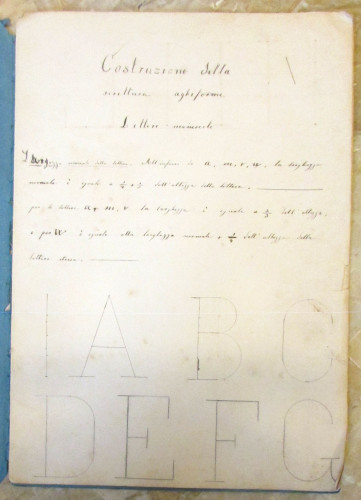 Costruzione della
scrittura agliforme
Lettere maiuscole
Larghezza normale delle lettere. Nell'infuori di A, M, V, W, la larghezza
normale è eguale a dell'altezza delle lettere.
per le lettere A, M, V la larghezza è eguale a dell'altezza,
e per W è eguale alla larghezza normale + dell'altezza della
lettera stessa.
I A B C
D E F G